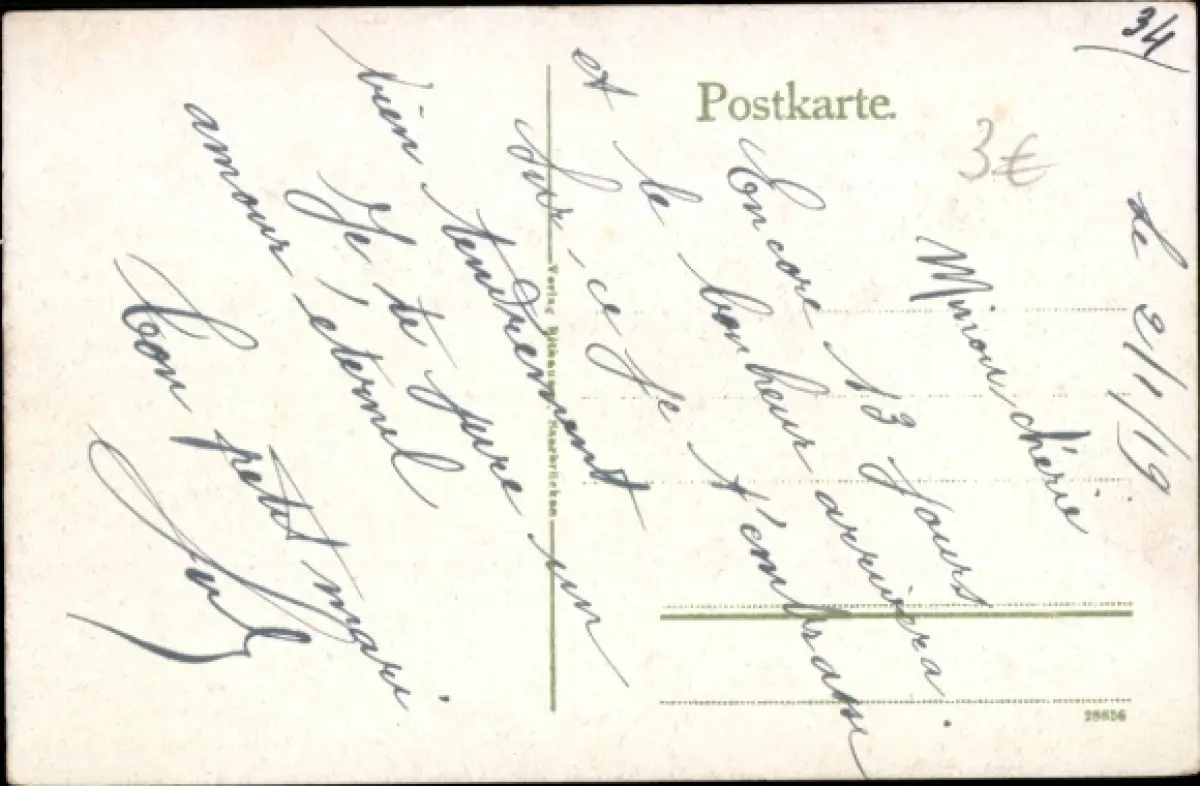 34
Postkarte.
3€
le 2/1/19
Minou chérie
Encore 13 jours
et le bonheur arrivera.
Sur-ce Je t'embrasse
bien tendrement
Je te jure un
amour éternel
Ton petit mari.
Verlag
Saarbrücken
28656